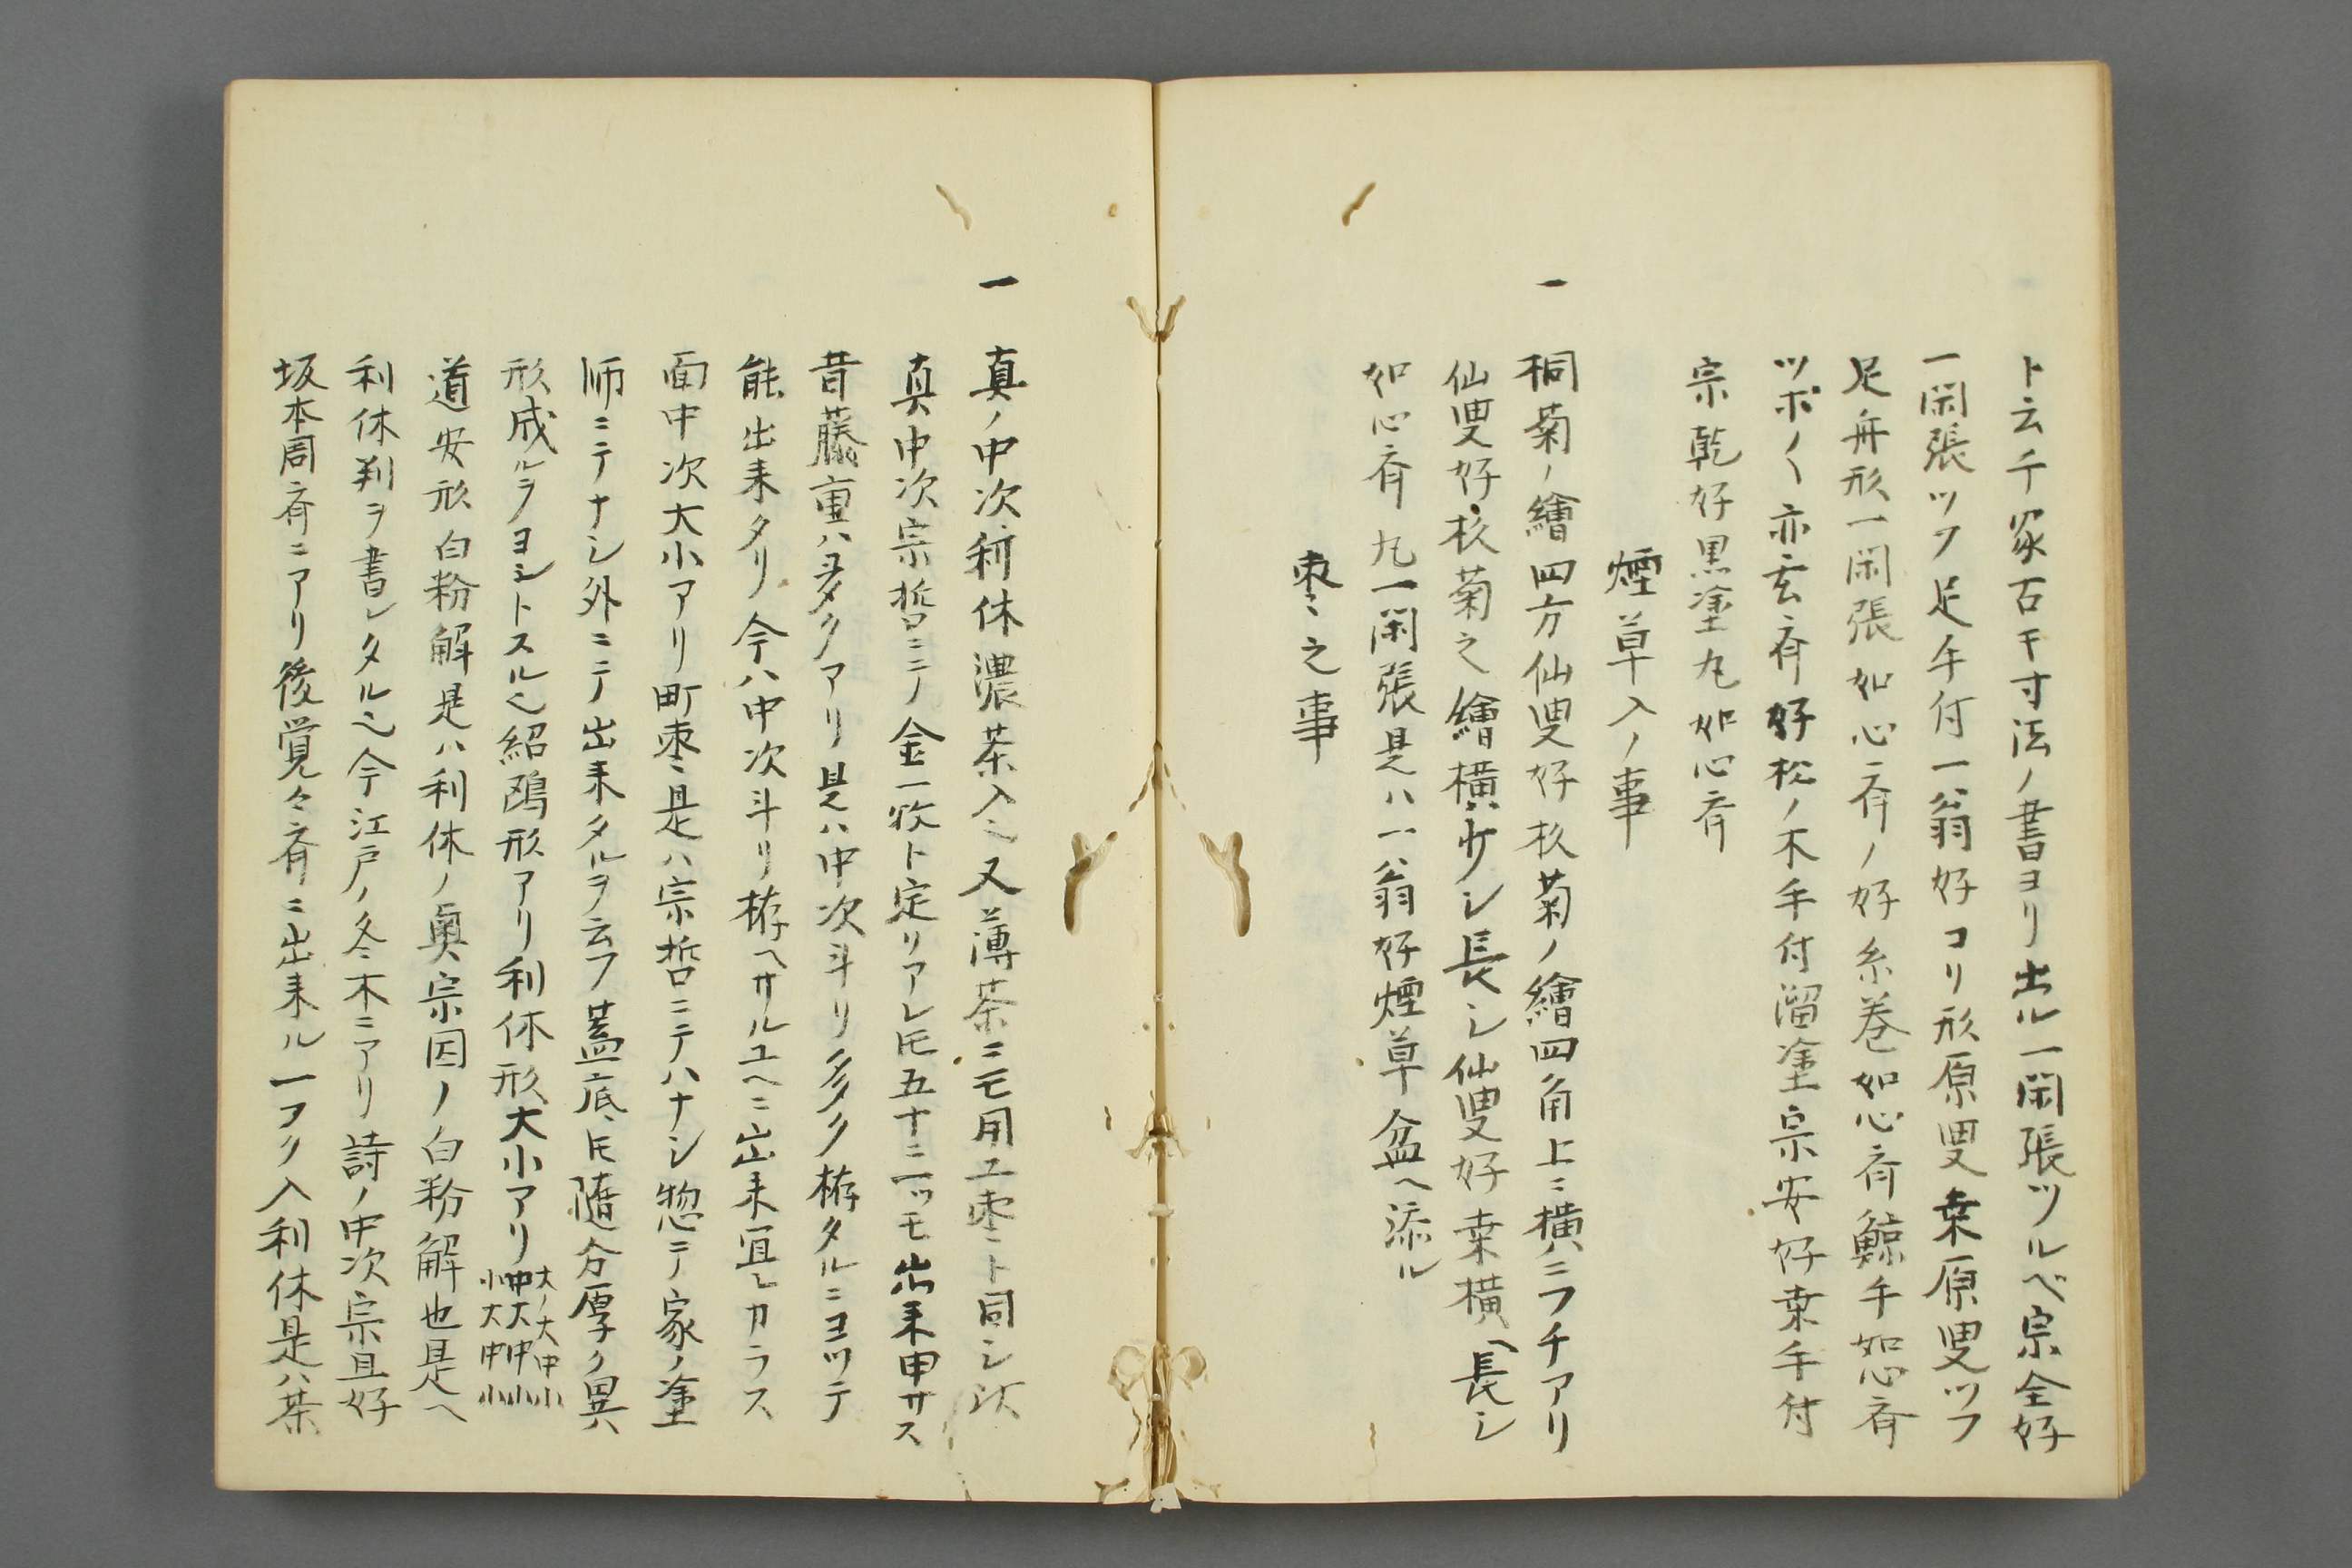 ト云千家石干寸法ノ書ヨリ出ル一閑張ツルベ宗全好
一閑張ツフ足手付一翁好コリ形原叟桒原叟ツフ
足舟形一閑張如心斉ノ好糸巻如心斉鯨手如心斉
ツボ〳〵亦玄斉好松ノ木手付溜塗宗安好桒手付
宗乾好黒塗丸如心斉
煙草入ノ事
一 桐菊ノ繪四方仙叟好杉菊ノ繪四角上ニ横ニフチアリ
仙叟好枝菊之繪横サシ長シ仙叟好桒横へ長シ
如心斉丸一閑張是ハ一翁好煙草盆へ添ル
棗之事
一 真ノ中次利休濃茶入也又薄茶ニモ用ユ棗ト同シ
真中次宗哲ニテ金一枚ト定リアレ𪜈五十ニ一ツモ出来申サス
昔藤重ハ多クアリ是ハ中次斗リ多ク拵タルニヨツテ
能出来タリ今ハ中次斗リ拵ヘサルユヘニ出来宜シカラス
面中次大小アリ町棗是ハ宗哲ニテハナシ惣テ家ノ塗
師ニテナシ外ニテ出来タルヲ云フ蓋底𪜈随分厚ク異
形成ルヲヨシトスル也紹鴎形アリ利休形大小アリ大ノ大中小 中大中小 小大中小
道安形白粉解是ハ利休ノ奥宗因ノ白粉解也是へ
利休判ヲ書レタル也今江戸ノ冬木ニアリ詩ノ中次宗旦好
坂本周斉ニアリ後覚々斉ニ出来ル一アリ入利休是ハ茶